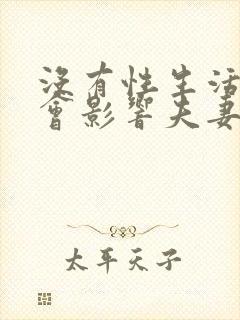 沒有性生活
會影響夫妻
太平天子